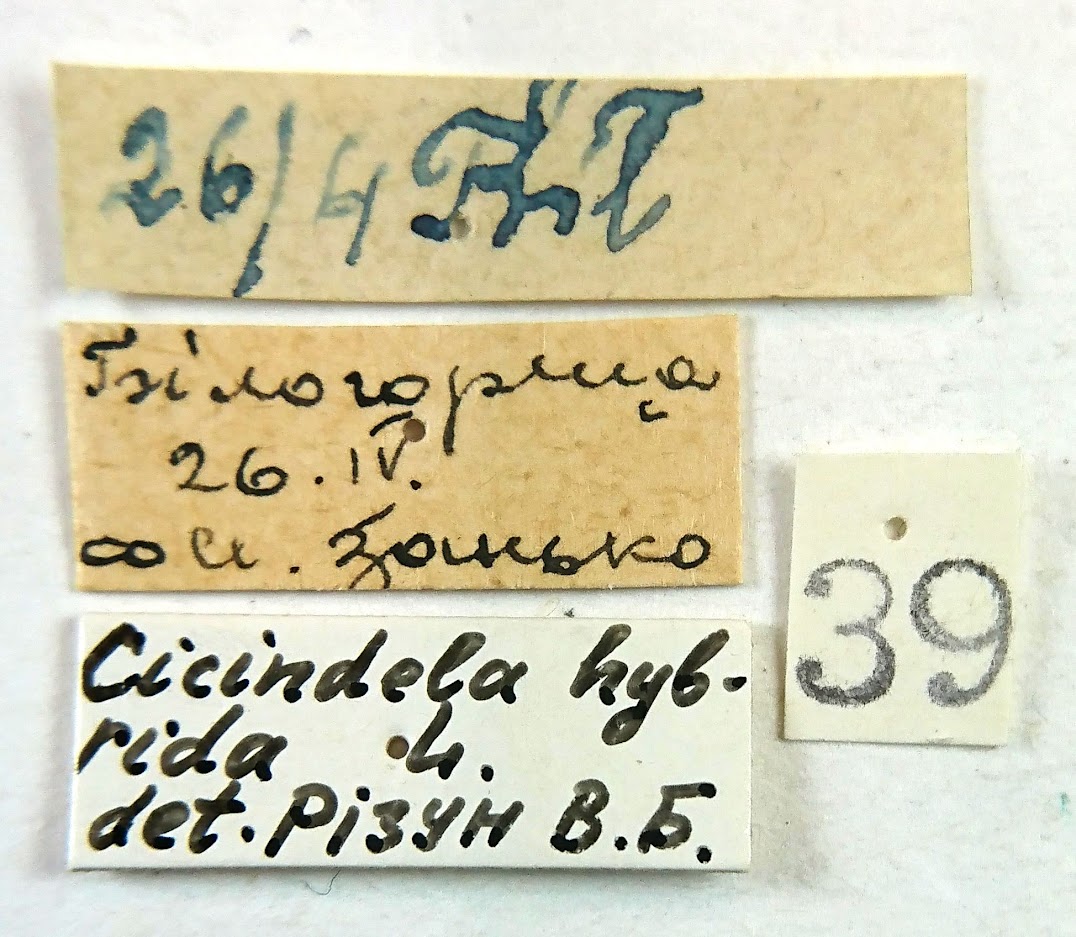 26/4
Білогорща
26. IV.
Cicindela hyb-
rida L.
det. Різун В.Б.
39